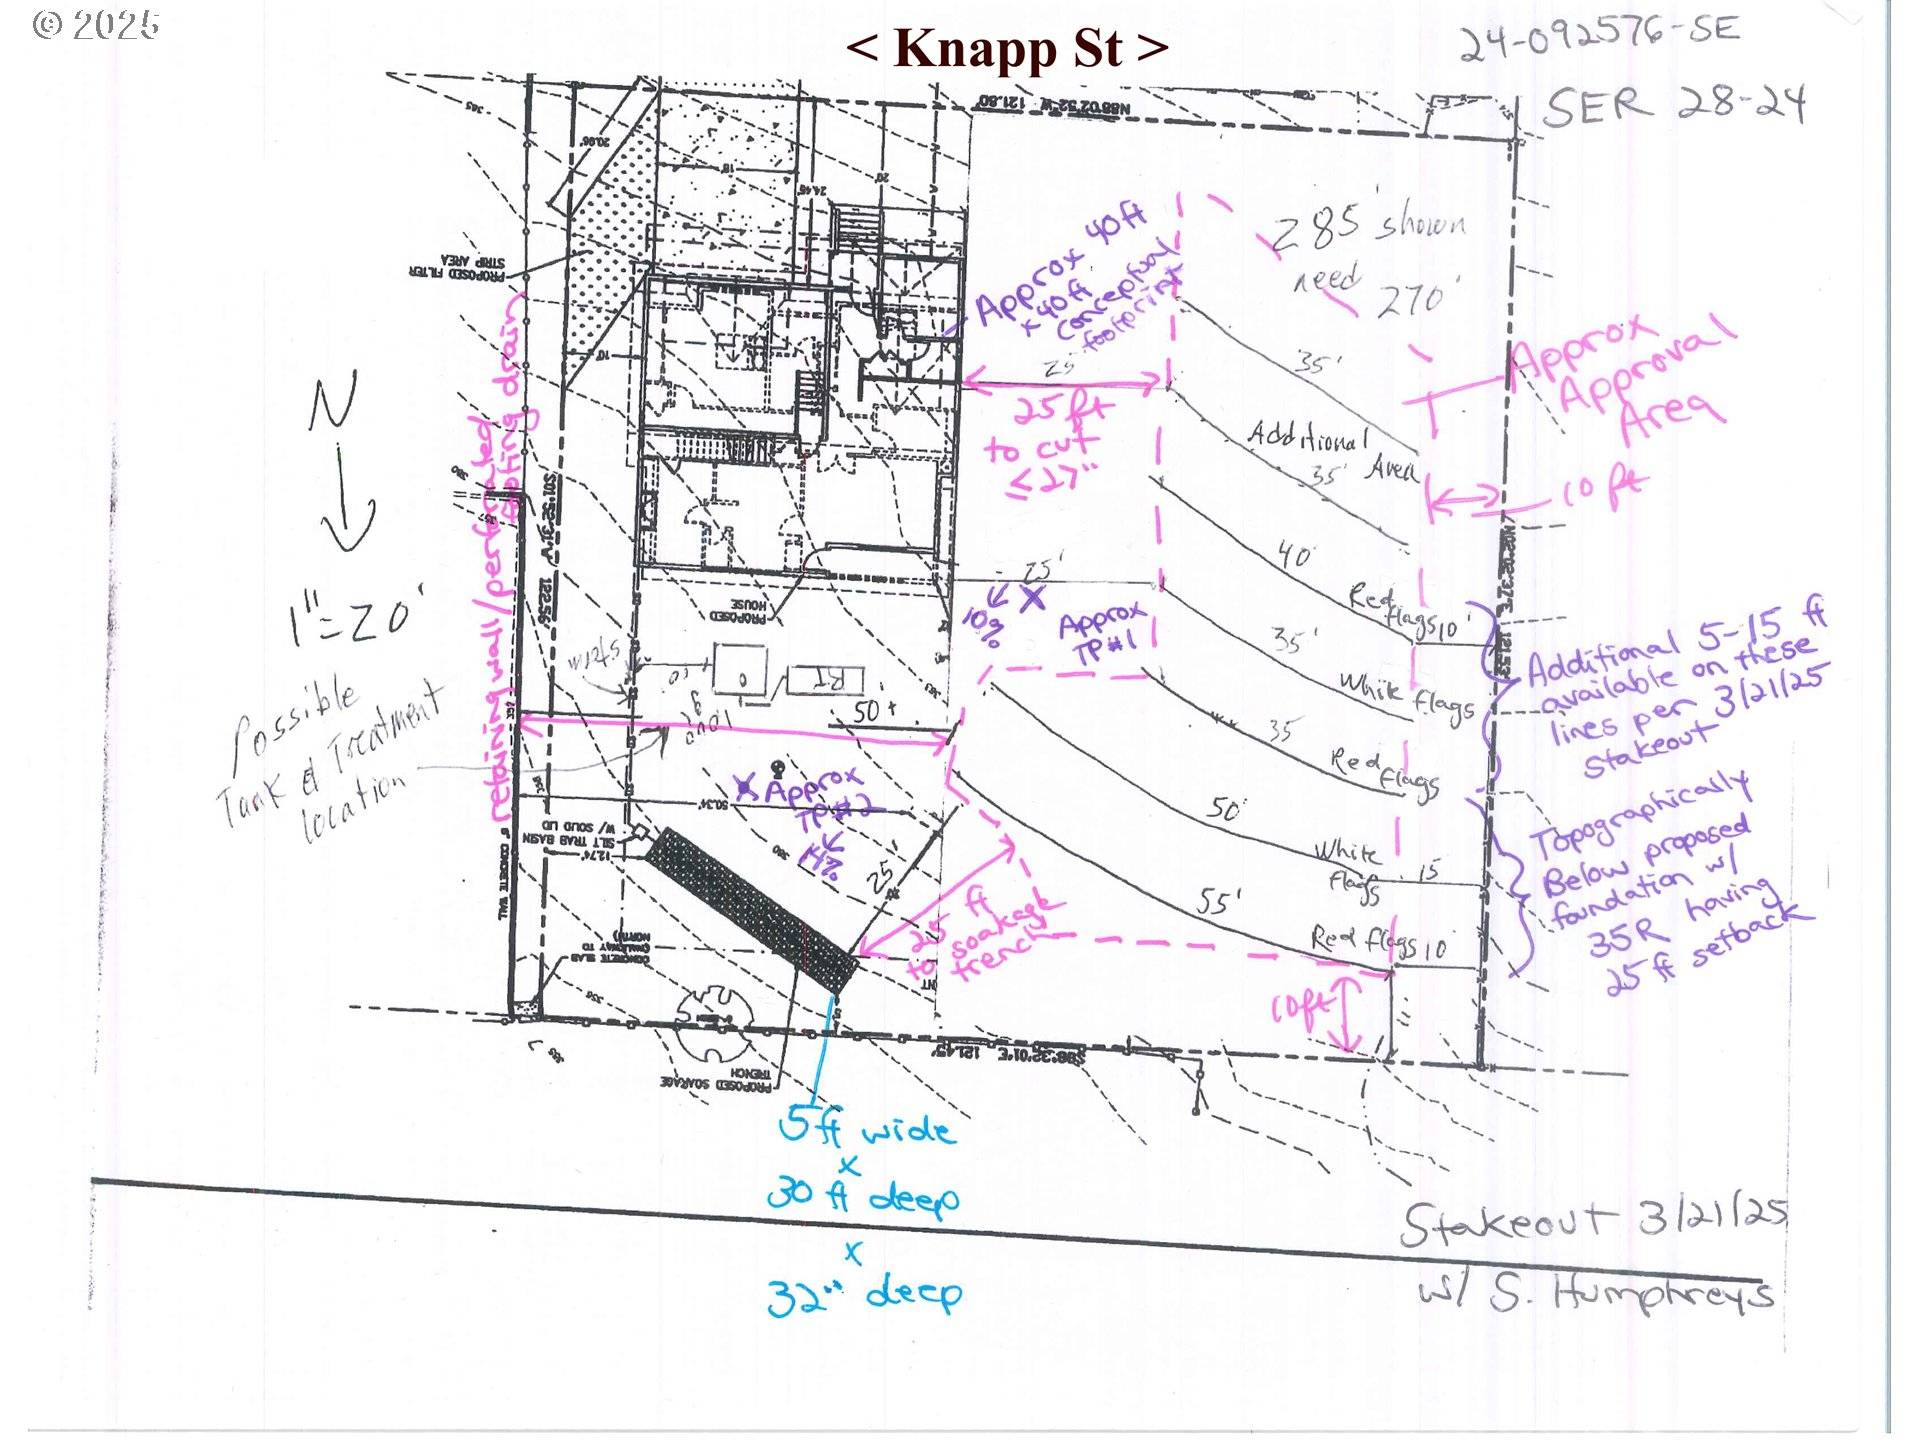 © 2025
< Knapp St >
24-092576-SE
SER 28-24
N88°02'52"W 121.80'
345
20.66'
18'
24.46'
20'
PROPOSED FILTER
STRIP AREA
10'
Approx 40ft
x 40ft
Conceptual
footprint
285' shown
need
270'
35'
Approx
Approval
Area
25'
25 ft
to cut
≤27"
Additional
Area
35'
10 ft
N
1" = 20'
retaining wall/perforated
footing drain
S01°52'31"W 122.56'
40'
Red
flags
10'
N02°02'37"E 121.53'
25'
10%
Approx
TP#1
PROPOSED
HOUSE
35'
White flags
Additional 5-15 ft
available on these
lines per 3/21/25
stakeout
Possible
Tank & Treatment
location
RT
50+
35
Red
flags
Approx
TP#2
14%
50.34'
SILT TRAP BASIN
W/ SOLID LID
12.74'
6" CONCRETE WALL
25'
50'
White
flags
15
Topographically
Below proposed
foundation w/
35R having
25 ft setback
25 ft
to soakage
trench
55'
Red flags
10'
CONCRETE SLAB
(WALKWAY TO
NORTH)
350
10ft
S88°32'01"E 121.45'
PROPOSED SOAKAGE
TRENCH
5ft wide
x
30 ft deep
x
32" deep
Stakeout 3/21/25
w/ S. Humphreys